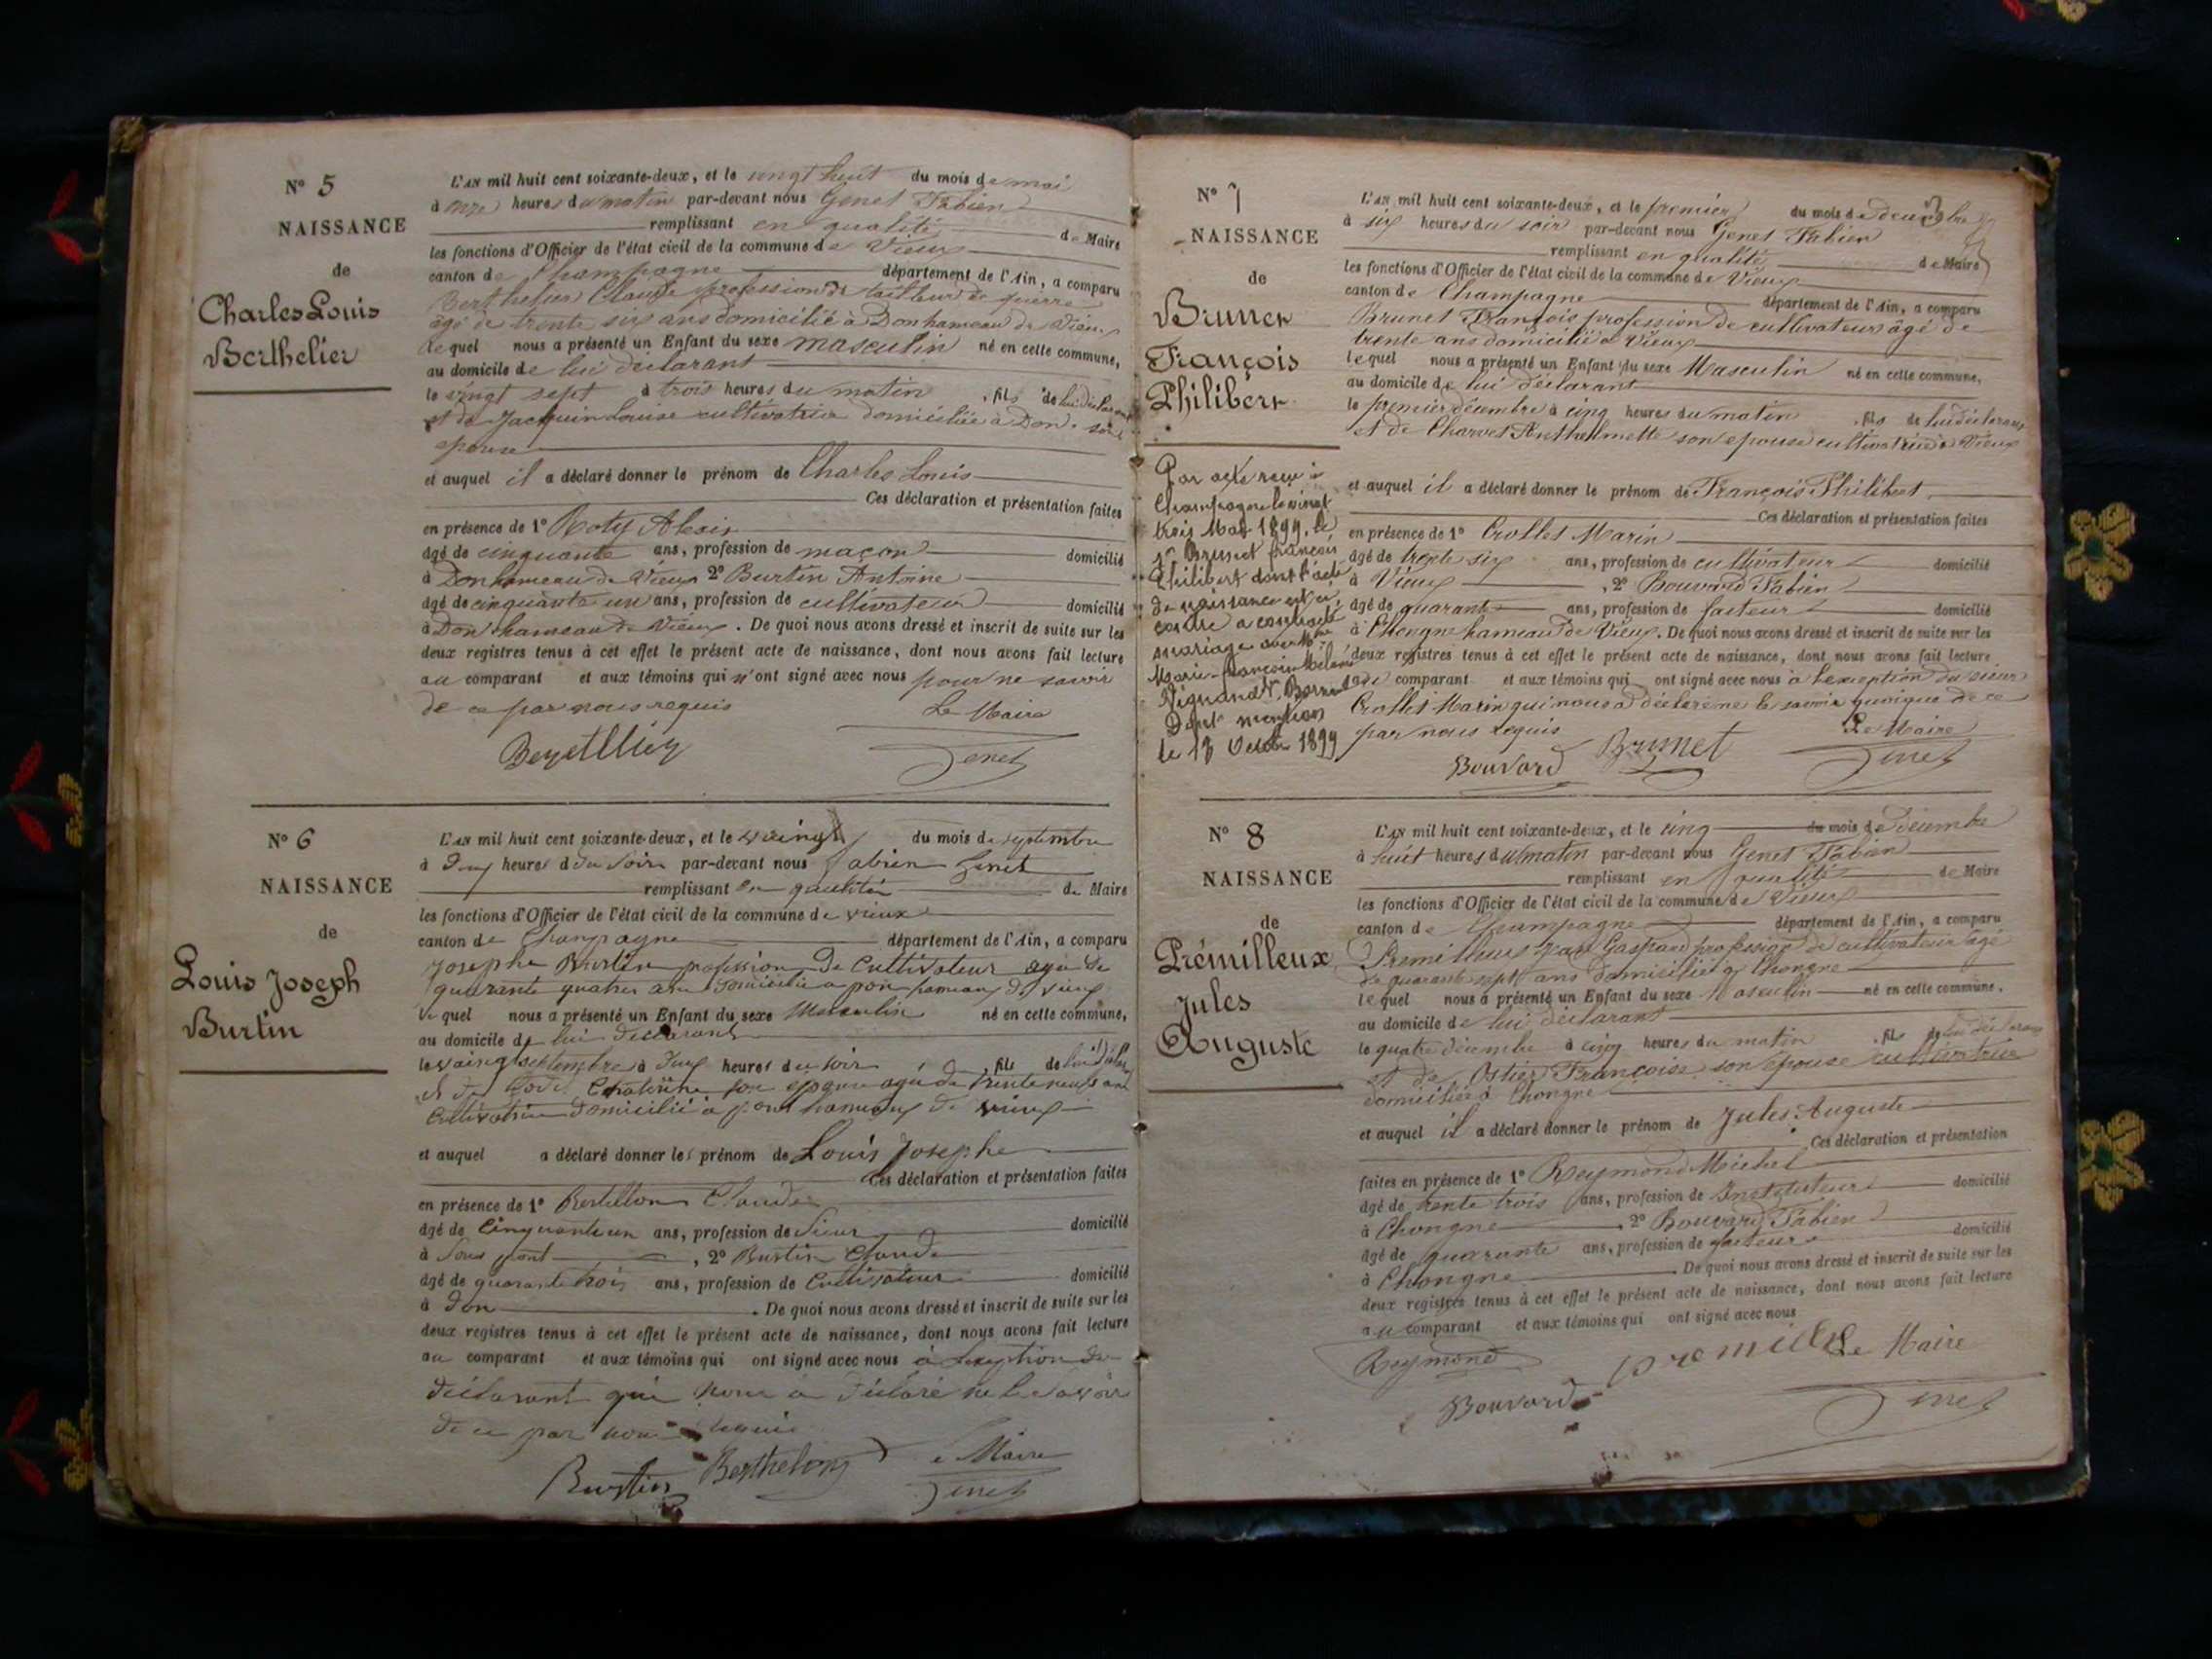 N° 5
NAISSANCE
de
Charles Louis
Berthelier
L'AN mil huit cent soixante-deux, et le vingt huit du mois de mai
à onze heures du matin par-devant nous Genet Fabien
remplissant en qualité de Maire
les fonctions d'Officier de l'état civil de la commune de Vieux
canton de Champagne département de l'Ain, a comparu
Berthelier Claude profession de tailleur de pierre
âgé de trente six ans domicilié à Don hameau de Vieux
lequel nous a présenté un Enfant du sexe masculin né en cette commune,
au domicile de lui déclarant
le vingt sept à trois heures du matin, fils de lui déclarant
et de Jacquin Louise cultivatrice domiciliée à Don son
épouse
et auquel il a déclaré donner le prénom de Charles Louis
Ces déclaration et présentation faites
en présence de 1° Roty Alexis
âgé de cinquante ans, profession de maçon domicilié
à Don hameau de Vieux 2° Burtin Antoine
âgé de cinquante un ans, profession de cultivateur domicilié
à Don hameau de Vieux. De quoi nous avons dressé et inscrit de suite sur les
deux registres tenus à cet effet le présent acte de naissance, dont nous avons fait lecture
au comparant et aux témoins qui n'ont signé avec nous pour ne savoir
de ce par nous requis Le Maire
Genet
N° 6
NAISSANCE
de
Louis Joseph
Burtin
L'AN mil huit cent soixante-deux, et le vaingt du mois de septembre
à deux heures d du soir par-devant nous fabien Genet
remplissant en qualitée de Maire
les fonctions d'Officier de l'état civil de la commune de vieux
canton de Champagne département de l'Ain, a comparu
Josephe Burtin profession De Cultivateur agée de
quarante quatre ans domicilié a pont hameaux de vieux
lequel nous a présenté un Enfant du sexe Masculin né en cette commune,
au domicile de lui declarant
le vaingt septembre à deux heures du soir, fils de lui déclarant
et de Caterine son epouse agée de trente neuf ans
Cultivatrice domicilié à pont hameaux de vieux
et auquel a déclaré donner les prénom de Louis Josephe
Ces déclaration et présentation faites
en présence de 1° Berthelon Claude
âgé de Cinquante un ans, profession de domicilié
à Sous pont, 2° Burtin Claude
âgé de quarante trois ans, profession de Cultivateur domicilié
à Don. De quoi nous avons dressé et inscrit de suite sur les
deux registres tenus à cet effet le présent acte de naissance, dont nous avons fait lecture
au comparant et aux témoins qui ont signé avec nous à l'exeption du
déclarant qui nous a déclaré ne le savoir
de ce par nous requis
Burtin Berthelon Le Maire
Genet
N° 7
NAISSANCE
de
Brunet
François
Philibert
Par acte reçu à
Champagne le vingt
trois Mai 1899, le
Sr Brunet françois
Philibert dont l'acte
de naissance est ci
contre a contracté
mariage avec
Marie-françoise
Dont mention
le 13 Octobre 1899
L'AN mil huit cent soixante-deux, et le premier du mois de décembre
à six heures du soir par-devant nous Genet Fabien
remplissant en qualité de Maire
les fonctions d'Officier de l'état civil de la commune de Vieux
canton de Champagne département de l'Ain, a comparu
Brunet François profession de cultivateur âgé de
trente ans domicilié à Vieux
lequel nous a présenté un Enfant du sexe Masculin né en cette commune,
au domicile de lui déclarant
le premier décembre à cinq heures du matin, fils de lui déclarant
et de Charvet Anthelmette son épouse cultivatrice à Vieux
et auquel il a déclaré donner le prénom de François Philibert
Ces déclaration et présentation faites
en présence de 1° Crollet Marin
âgé de trente six ans, profession de cultivateur domicilié
à Vieux, 2° Bouvard Fabien
âgé de quarante ans, profession de facteur domicilié
à Chongne hameau de Vieux. De quoi nous avons dressé et inscrit de suite sur les
deux registres tenus à cet effet le présent acte de naissance, dont nous avons fait lecture
au comparant et aux témoins qui ont signé avec nous à l'exception du sieur
Crollet Marin qui nous a déclaré ne le savoir quoique de ce
par nous requis Le Maire
Bouvard Brunet Genet
N° 8
NAISSANCE
de
Prémilleux
Jules
Auguste
L'AN mil huit cent soixante-deux, et le cinq du mois de décembre
à huit heures du matin par-devant nous Genet Fabien
remplissant en qualité de Maire
les fonctions d'Officier de l'état civil de la commune de Vieux
canton de Champagne département de l'Ain, a comparu
Premilleux Jean Gaspard profession de cultivateur âgé
de quarante sept ans domicilié à Chongne
lequel nous a présenté un Enfant du sexe Masculin né en cette commune.
au domicile de lui déclarant
le quatre décembre à cinq heures du matin, fils de lui déclarant
et de Ostier Françoise son épouse cultivatrice
domiciliée à Chongne
et auquel il a déclaré donner le prénom de Jules Auguste
Ces déclaration et présentation
faites en présence de 1° Reymond Michel
âgé de trente trois ans, profession de Instituteur domicilié
à Chongne, 2° Bouvard Fabien
âgé de quarante ans, profession de facteur domicilié
à Chongne. De quoi nous avons dressé et inscrit de suite sur les
deux registres tenus à cet effet le présent acte de naissance, dont nous avons fait lecture
au comparant et aux témoins qui ont signé avec nous
Reymond Le Maire
Bouvard Genet